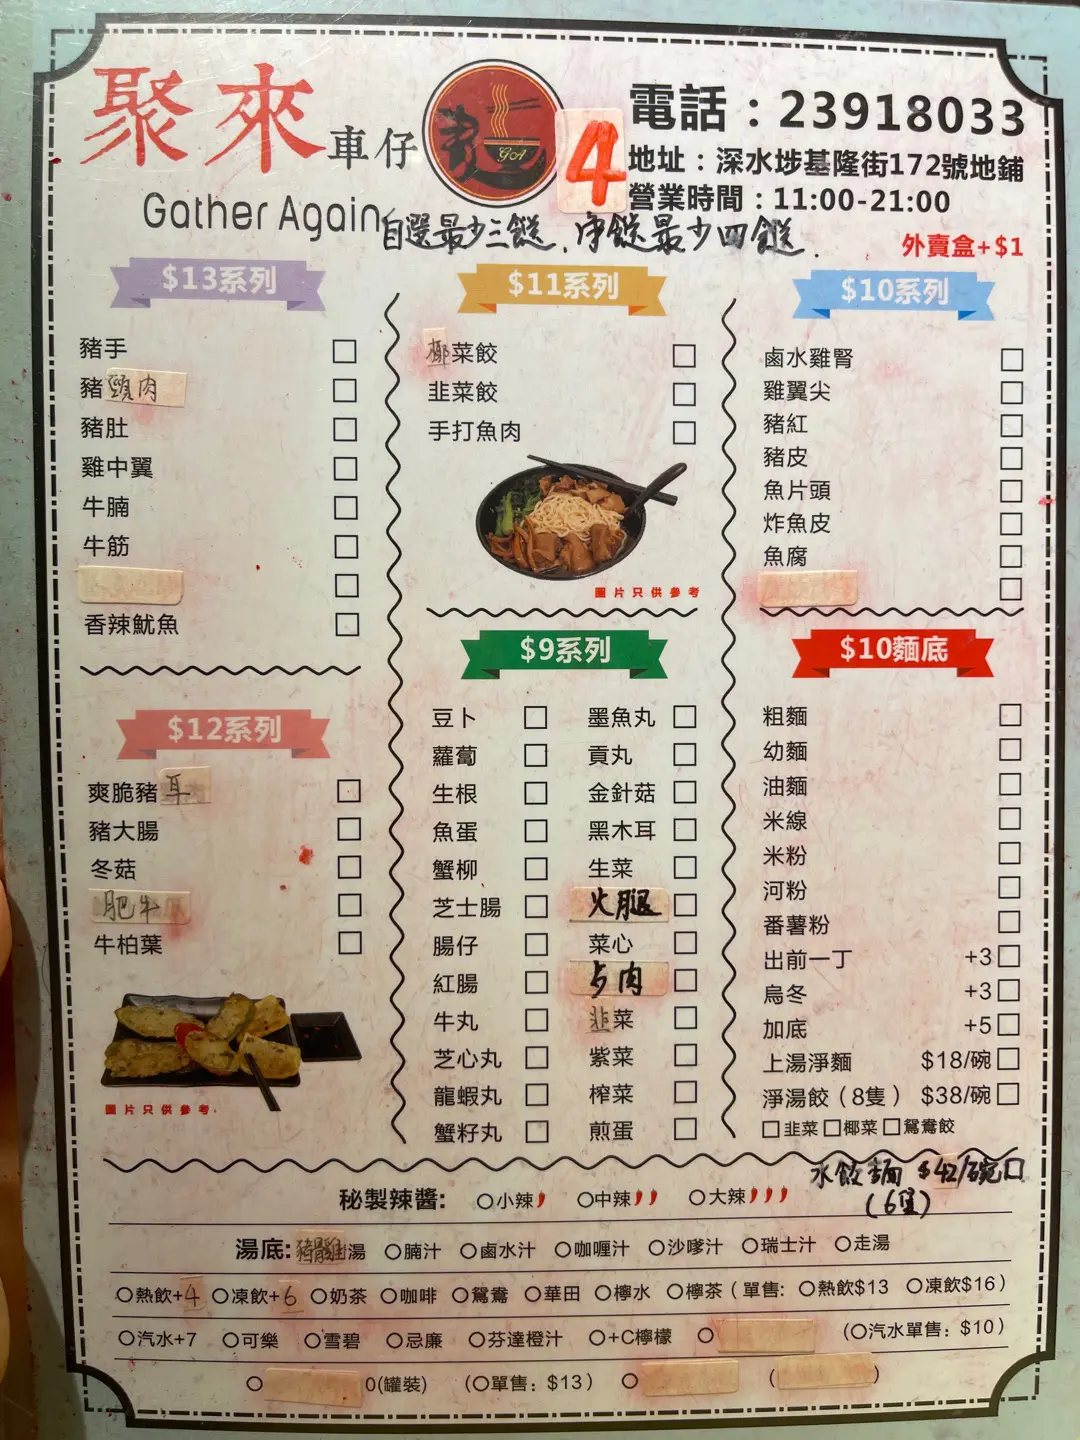 聚來車仔
Gather Again
GA
4
電話：23918033
地址：深水埗基隆街172號地鋪
營業時間：11:00-21:00
自選最少三餸，淨餸最少四餸.
外賣盒+$1
$13系列
豬手
豬頸肉
豬肚
雞中翼
牛腩
牛筋
香辣魷魚
$12系列
爽脆豬耳
豬大腸
冬菇
肥牛
牛柏葉
圖片只供參考
$11系列
椰菜餃
韭菜餃
手打魚肉
圖片只供參考
$9系列
豆卜
蘿蔔
生根
魚蛋
蟹柳
芝士腸
腸仔
紅腸
牛丸
芝心丸
龍蝦丸
蟹籽丸
墨魚丸
貢丸
金針菇
黑木耳
生菜
火腿
菜心
肉
韭菜
紫菜
榨菜
煎蛋
$10系列
鹵水雞腎
雞翼尖
豬紅
豬皮
魚片頭
炸魚皮
魚腐
$10麵底
粗麵
幼麵
油麵
米線
米粉
河粉
番薯粉
出前一丁 +3
烏冬 +3
加底 +5
上湯淨麵 $18/碗
淨湯餃（8隻） $38/碗
韭菜 椰菜 鴛鴦餃
水餃麵 $42/碗
(6隻)
秘製辣醬: 小辣 中辣 大辣
湯底: 湯 腩汁 鹵水汁 咖喱汁 沙嗲汁 瑞士汁 走湯
熱飲+4 凍飲+6 奶茶 咖啡 鴛鴦 華田 檸水 檸茶（單售: 熱飲$13 凍飲$16）
汽水+7 可樂 雪碧 忌廉 芬達橙汁 +C檸檬 （汽水單售：$10）
0(罐裝) （單售：$13） ( )